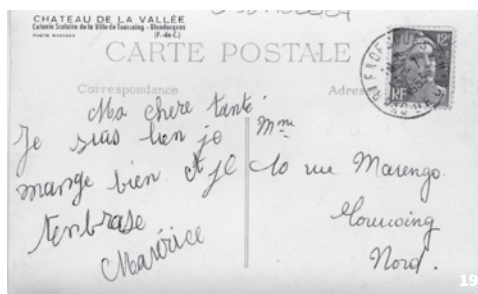 CHATEAU DE LA VALLÉE
Colonie Scolaire de la Ville de Tourcoing - Blendecques
(P.-de-C.)
CARTE POSTALE
Correspondance
Adres
Ma chere tante
Je suis bien je
mange bien et je
tenbrase
Maurice
Mme
10 rue Marengo
Tourcoing
Nord.
12
RF
19